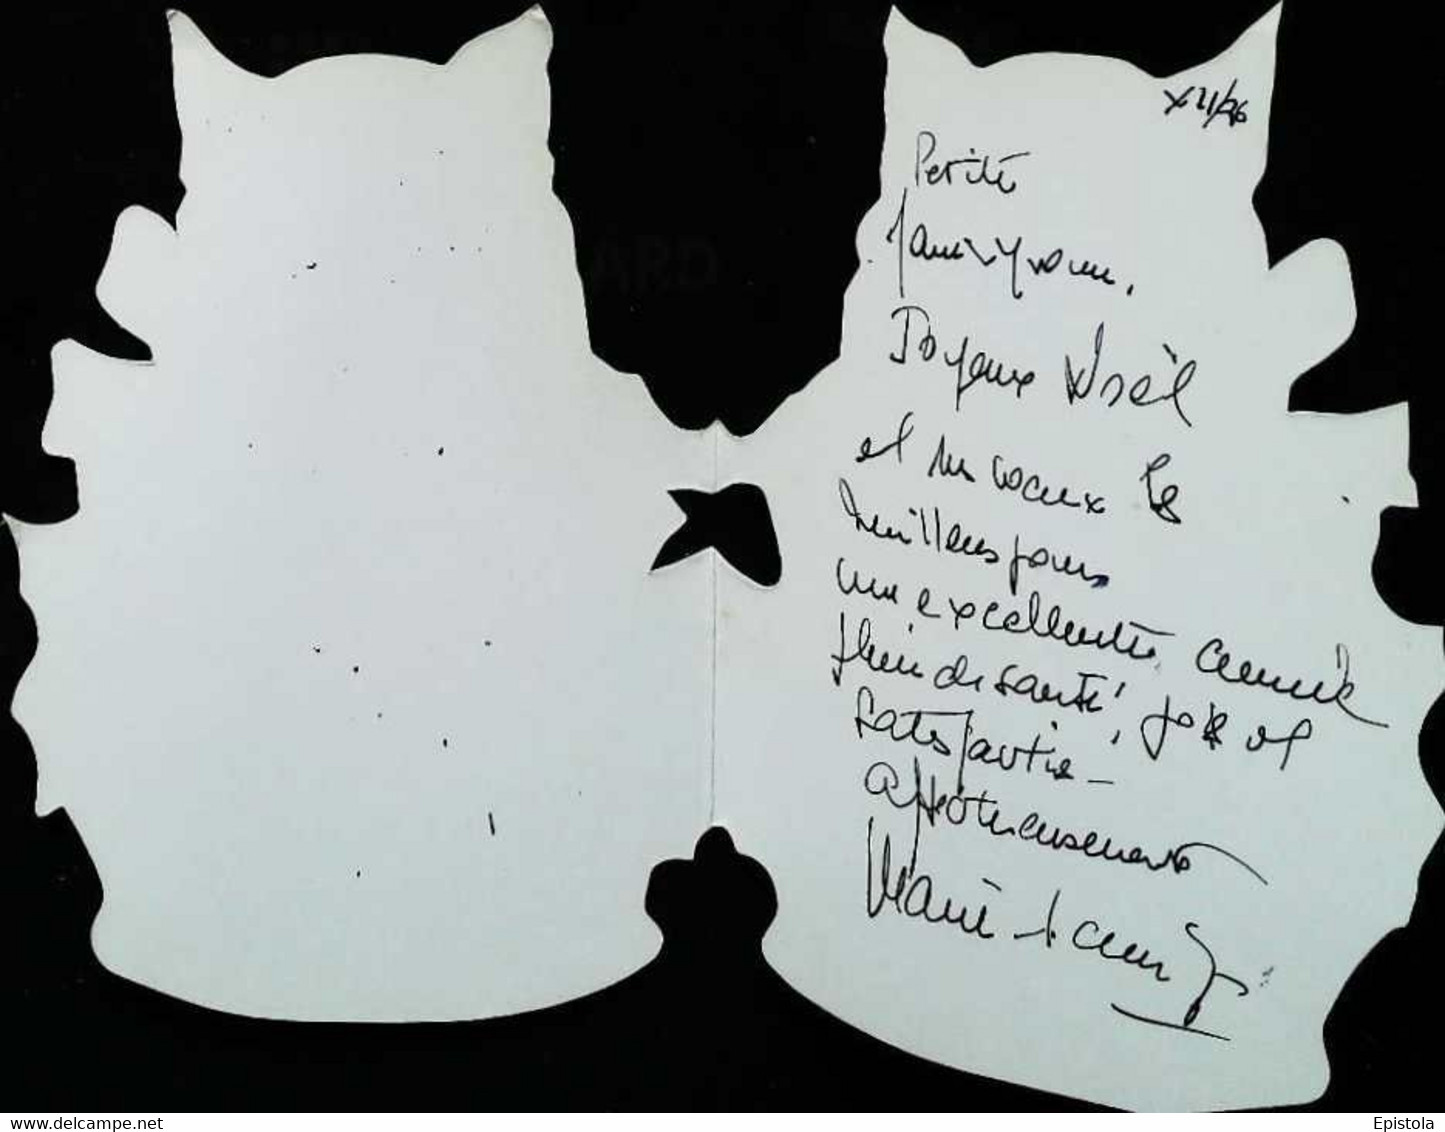 XII/96
Petite
Marie Yvonne,
Joyeux Noël
et mes voeux les
meilleurs pour
une excellente année
pleine de santé, joie et
satisfaction -
Affectueusement
Marie
www.delcampe.net
Epistola